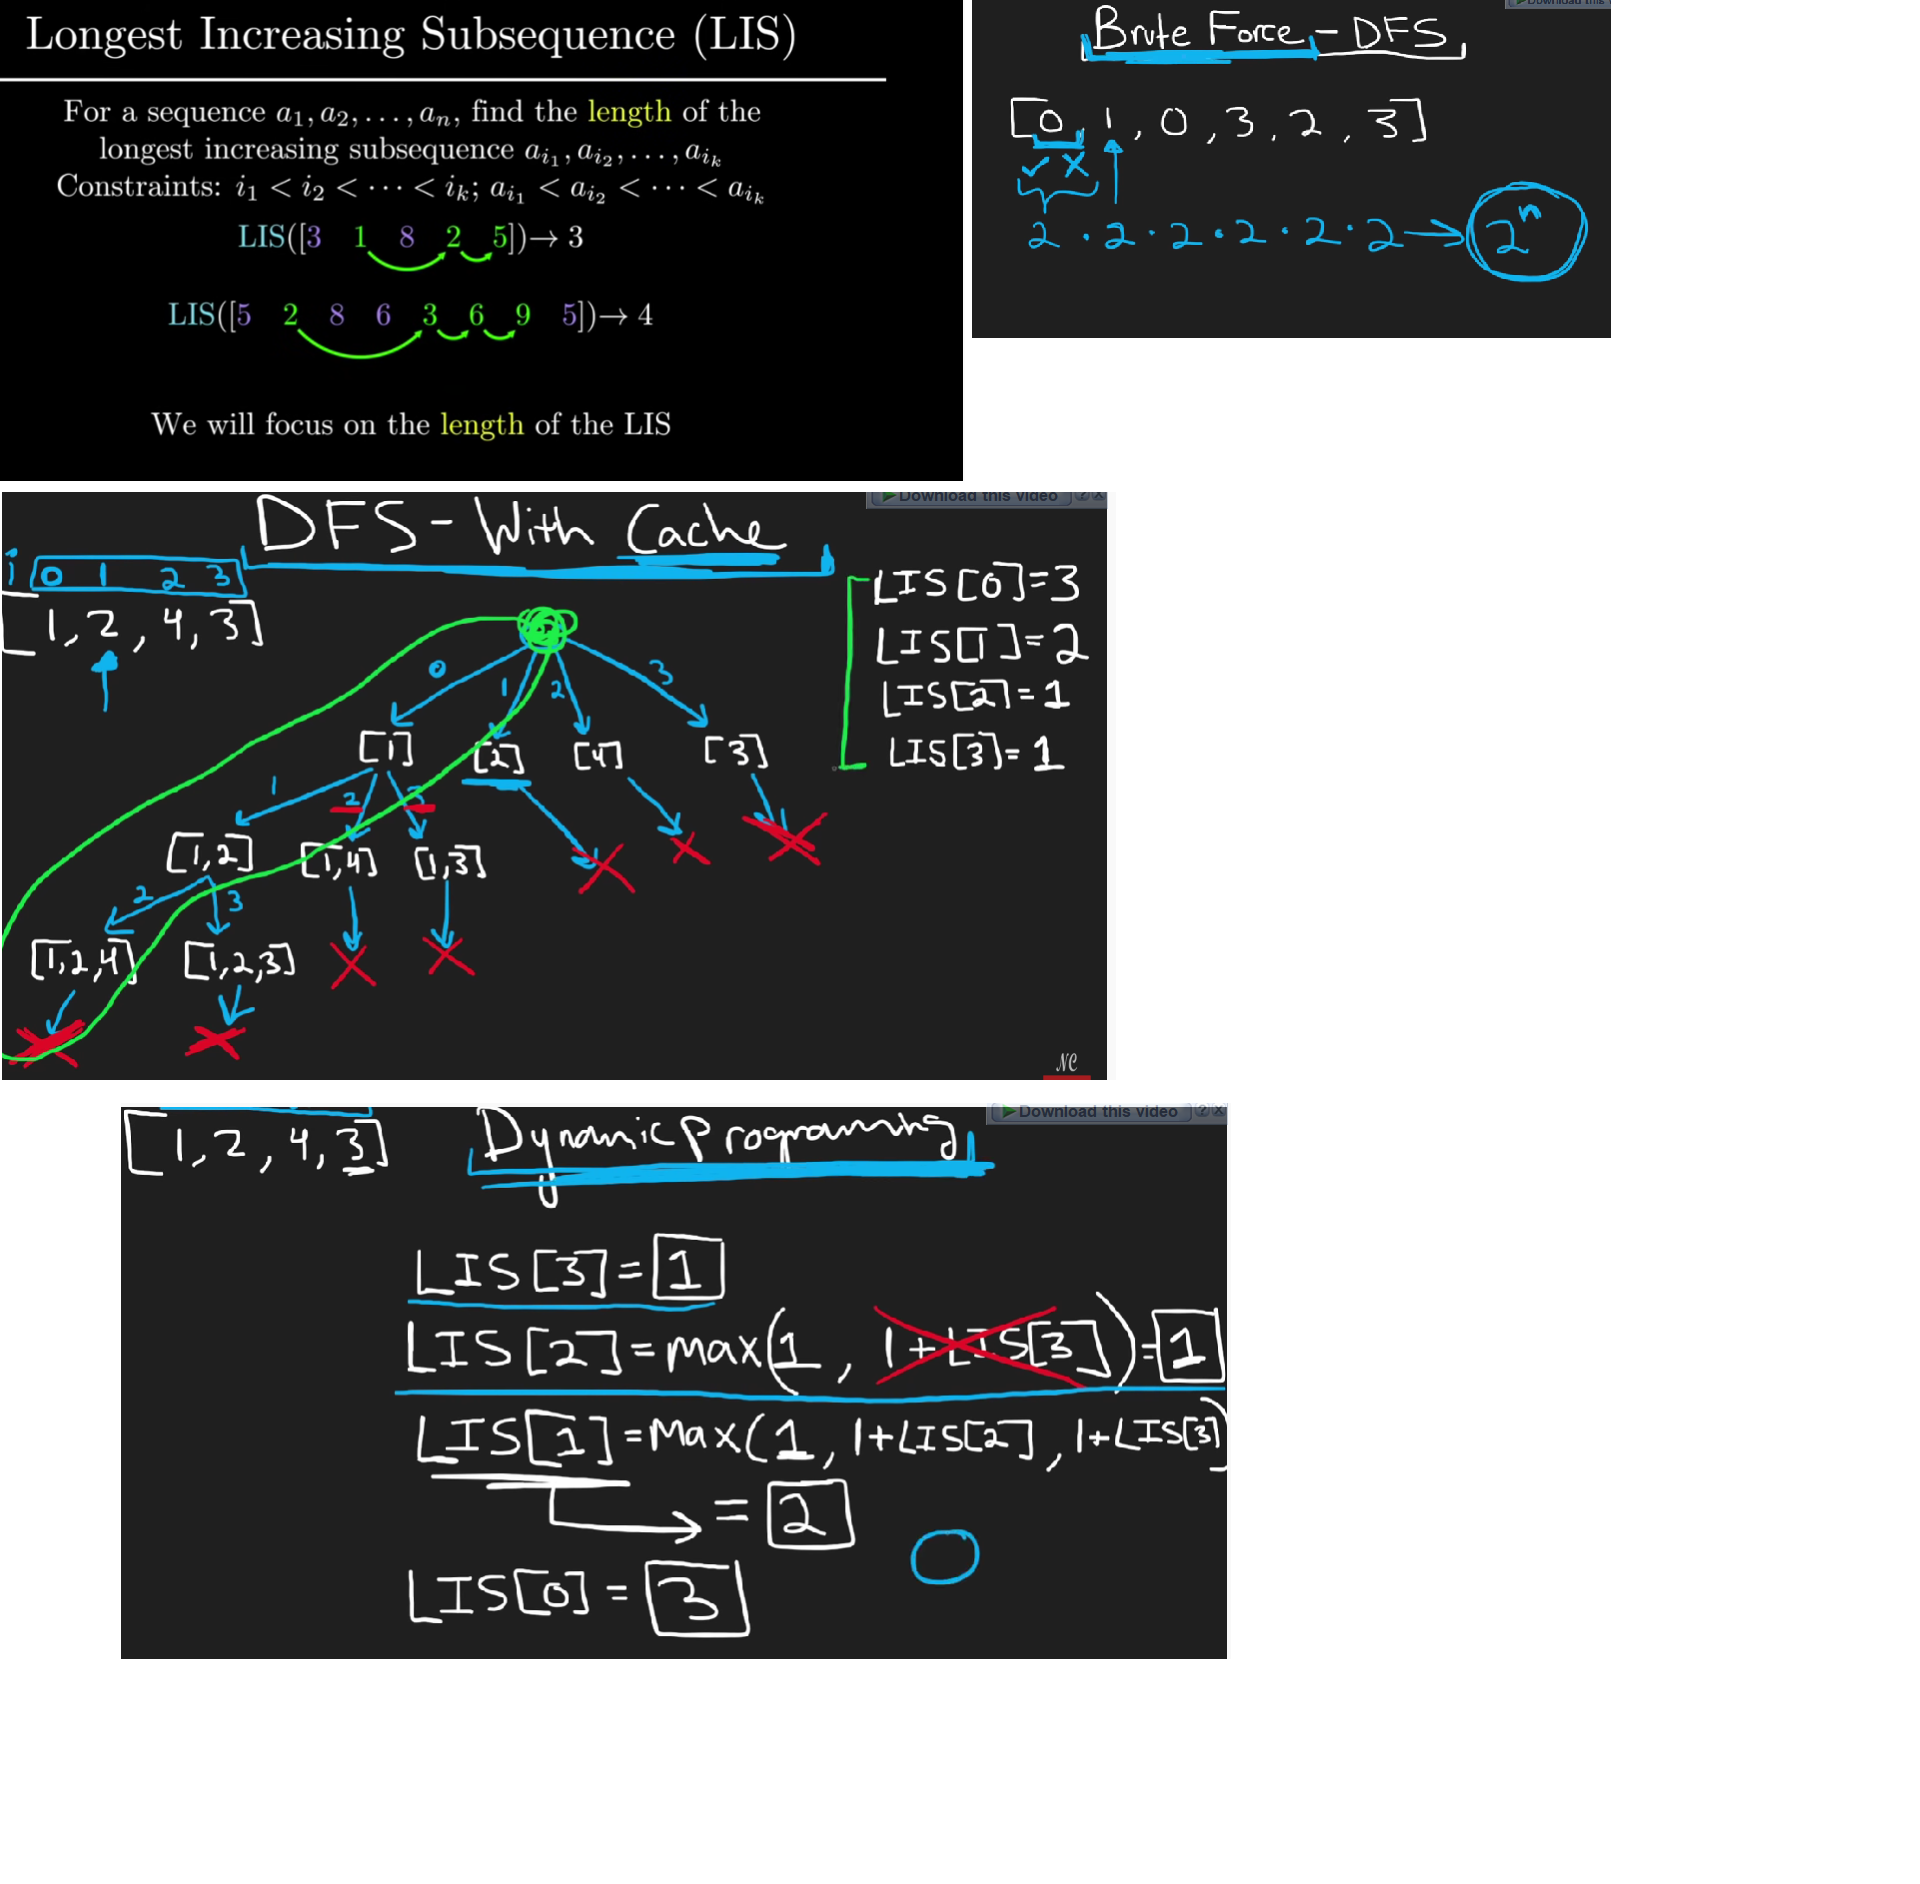 Longest Increasing Subsequence (LIS)
For a sequence a₁, a₂, . . . , aₙ, find the length of the
longest increasing subsequence a_{i₁}, a_{i₂}, . . . , a_{iₖ}
Constraints: i₁ < i₂ < ··· < iₖ; a_{i₁} < a_{i₂} < ··· < a_{iₖ}
LIS([3 1 8 2 5])→ 3
LIS([5 2 8 6 3 6 9 5])→ 4
We will focus on the length of the LIS
Download this
Brute Force - DFS
[0, 1, 0, 3, 2, 3]
2 · 2 · 2 · 2 · 2 · 2 → 2ⁿ
Download this video ? x
DFS - With Cache
i 0 1 2 3
[1, 2, 4, 3]
LIS[0]=3
LIS[1]=2
LIS[2]=1
LIS[3]=1
0 1 2 3
[1] [2] [4] [3]
1 2 3
[1,2] [1,4] [1,3]
2 3
[1,2,4] [1,2,3]
NC
Download this video ? x
[1, 2, 4, 3]
Dynamic Programming
LIS[3]= 1
LIS[2]= max(1, 1+LIS[3])= 1
LIS[1]= Max(1, 1+LIS[2], 1+LIS[3])
= 2
LIS[0]= 3